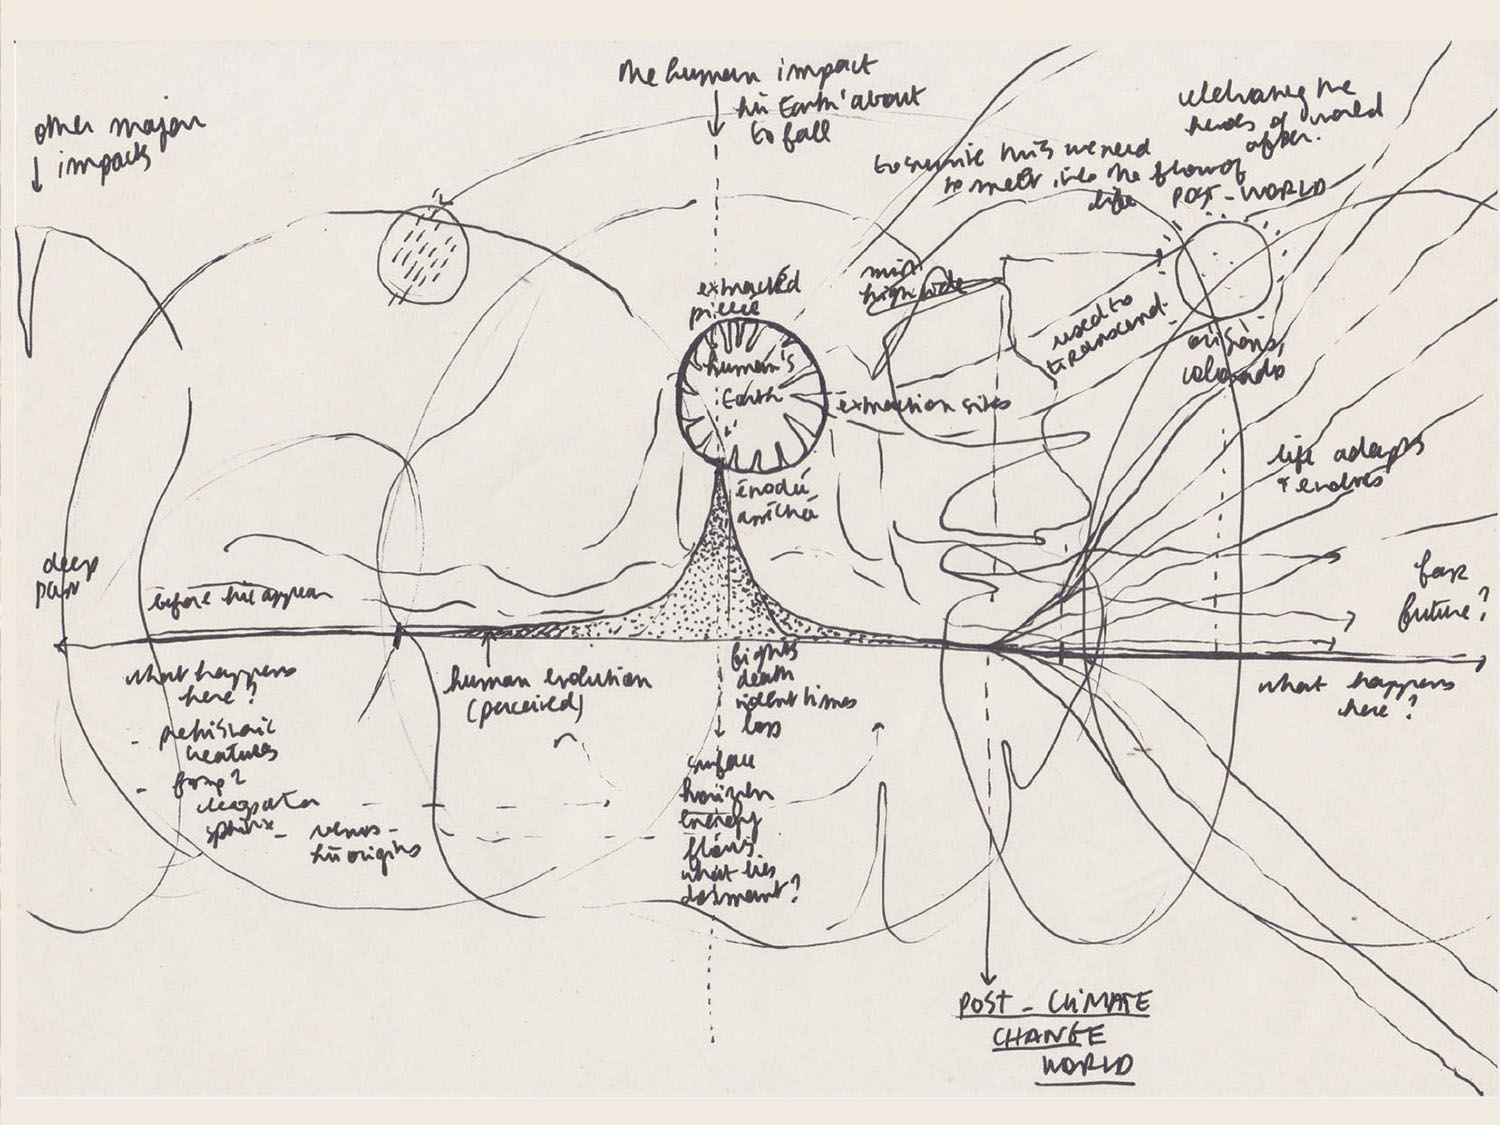 The human impact
hū Earth' about
to fall
other major
impacts
to survive this we need
to melt into the flow of
life
celebrating the
heads of world
after.
POST-WORLD
extracted
piece
human's
Earth
extraction sites
high tide
used to
transcend.
origins,
life adapts
& evolves
deep
past
before life appear
far
future?
what happens
here?
- prehistoric
creatures
-
sphinx -
venus -
hū origins
human evolution
(perceived)
fights
death
violent times
loss
surface
horizon
energy
flows
what lies
dormant?
what happens
here?
POST-CLIMATE
CHANGE
WORLD